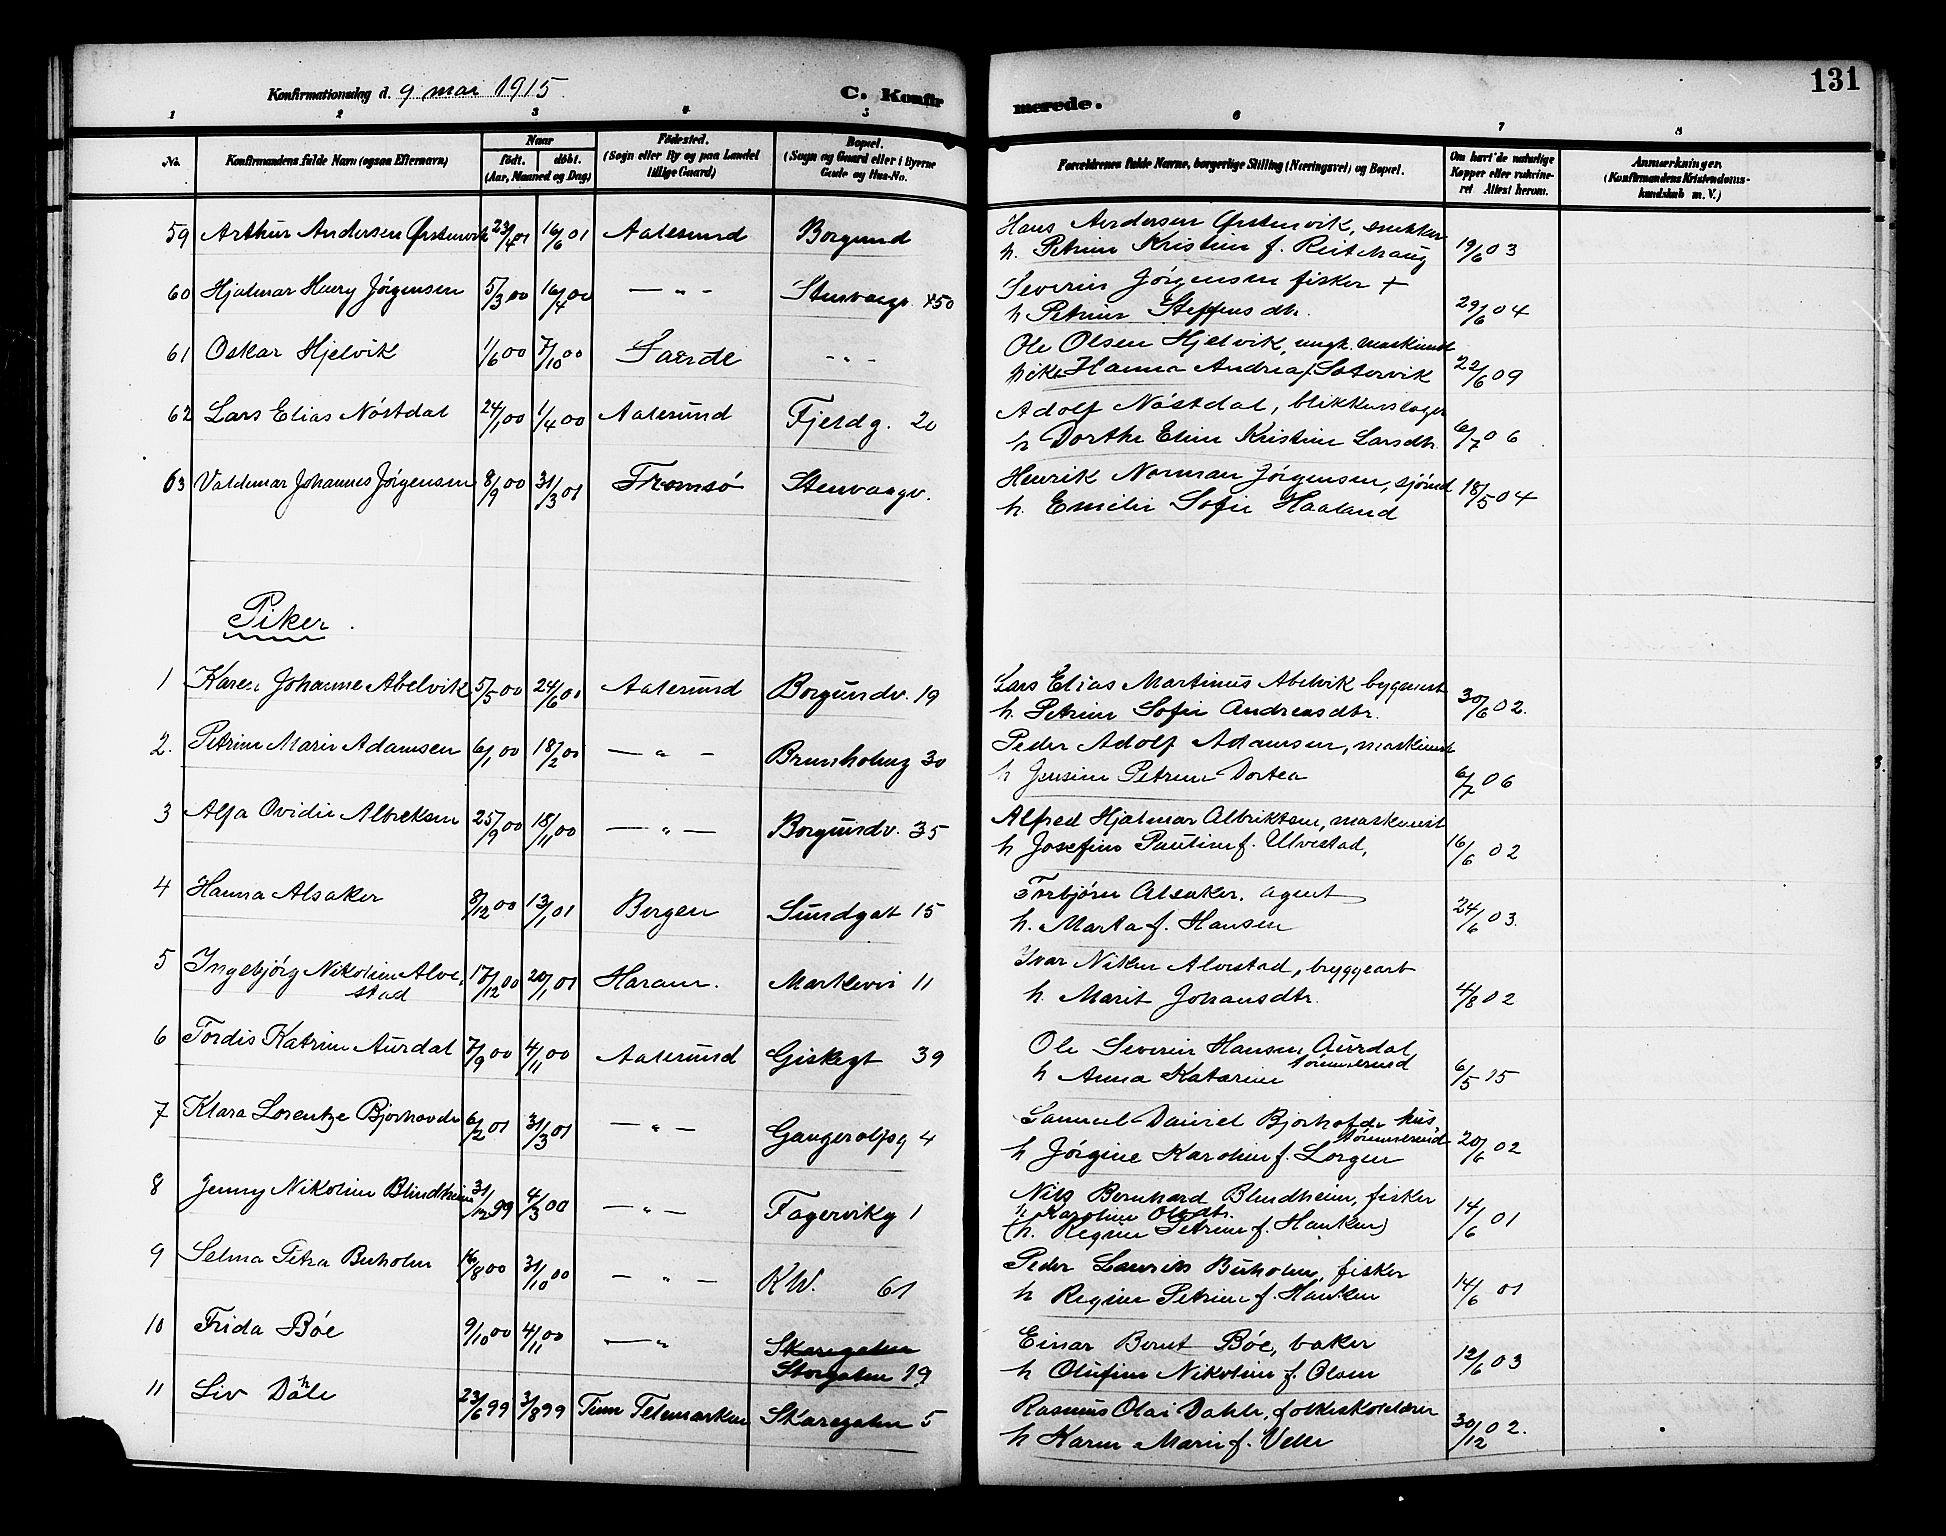 131
Konfirmationsdag d. 9 mai 1915
C. Konfirmerede.
1 2 3 4 5 6 7 8
No.
Konfirmandens fulde Navn (ogsaa Efternavn)
Naar
født. døbt.
(Aar, Maaned og Dag)
Fødested.
(Sogn eller By og paa Landet
tillige Gaard)
Bopæl.
(Sogn og Gaard eller i Byerne
Gade og Hus-No.
Forældrenes fulde Navne, borgerlige Stilling (Næringsvei) og Bopæl.
Om havt de naturlige
Kopper eller vakcine-
ret Attest herom.
Anmærkninger.
(Konfirmandens Kristendoms-
kundskab m. V.)
59 Arthur Andersen Ørstenvik 23/4 01 16/6 01 Aalesund Borgund Hans Andersen Ørstenvik, snekker
h. Petrine Kristine f. Reitehaug 19/6 03
60 Hjalmar Harry Jørgensen 5/3 00 16/4 00 — " — Stenvaagv. 50 Severin Jørgensen fisker +
h Petrine Steffensdtr. 29/6 04
61 Oskar Hjelvik 1/6 00 7/10 00 - " - Ole Olsen Hjelvik, ungk. maskinist
pike Hanna Andrea Satervik 22/6 09
62 Lars Elias Nøstdal 24/1 00 1/4 00 Aalesund Fjeldg. 20 Adolf Nøstdal, blikkenslager
h Dorthe Eline Kristine Larsdtr. 6/7 06
63 Valdemar Johannes Jørgensen 8/9 00 31/3 01 Tromsø Stenvaagv. Henrik Norman Jørgensen, sjømd
h. Emilie Sofie Haaland 18/5 04
Piker.
1 Karen Johanne Abelvik 5/5 00 24/6 00 Aalesund Borgundv. 19 Lars Elias Martinus Abelvik byggmest
h. Petrine Sofie Andreasdtr. 30/6 02.
2. Petrine Marie Adamsen 6/1 00 18/2 00 — " — Brunholmg 30 Peder Adolf Adamsen, maskinist
h Jensine Petrine Dortea 6/7 06
3 Alfa Ovidie Albreksen 25/9 00 18/11 00 — " — Borgundv. 35 Alfred Hjalmar Albriktsen, maskinist
h Josefine Pauline f. Ulvestad, 16/6 02
4 Hanna Alsaker 8/12 00 13/1 01 Bergen Sundgat 15 Torbjørn Alsaker. agent
h. Marta f. Hansen 24/6 03.
5 Ingebjørg Nikoline Alve-
stad 17/12 00 20/1 01 Haram. Markevei 11 Ivar Nikolai Alvestad, bryggearb
h. Marit Johansdtr. 4/8 02
6 Tordis Katrine Aurdal 7/9 00 4/11 00 Aalesund Giskegt 39 Ole Severin Hansen Aurdal
tømmermd
h Anna Katarine 6/5 15
7 Klara Lorentze Bjørhovde 6/2 01 31/3 01 — " — Gangerolfsg 4 Samuel Daniel Bjørhofde hus
tømmermd
h Jørgine Karoline f. Lorgen 20/6 02
8 Jenny Nikoline Blindheim 31/12 99 4/3 00 — " — Fagervikg 1 Nils Bernhard Blindheim, fisker
h Karoline Olsdtr.
(h. Regine Petrine f. Hanken) 14/6 01
9 Selma Petra Buholm 16/8 00 31/10 00 — " — K.W. 61 Peder Laurits Buholm, fisker
h Regine Petrine f. Hanken 14/6 01
10 Frida Bøe 9/10 00 4/11 00 — " Skaregaten
Storgaten 19 Einar Bernt Bøe, baker
h Olufine Nikoline f. Olsen 12/6 03
11 Liv Dahle 23/6 99 3/8 99 Tinn Telemarken Skaregaten 5 Rasmus Olai Dahle, folkeskolelærer
h Karen Marie f. Velle 30/12 02.